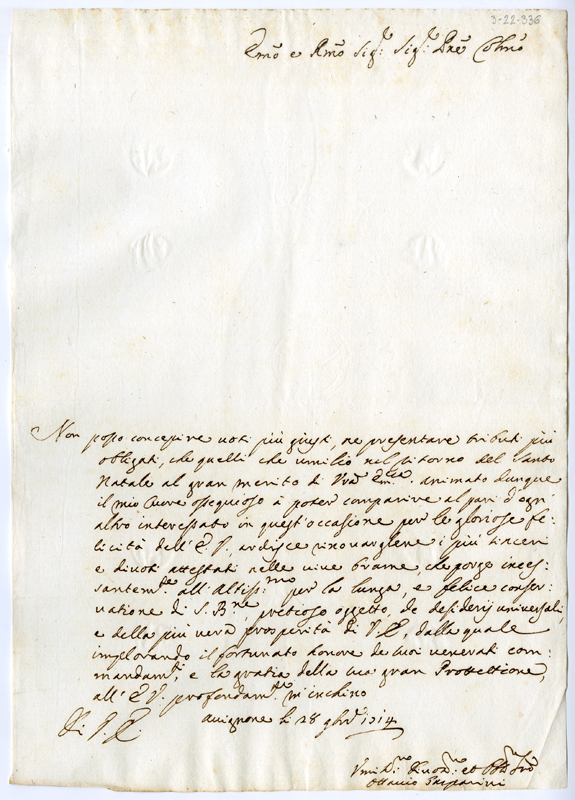 3-22-336
Emõ e Rmõ Sigr: Sigr: Pne Colmõ
Non posso concepire uoti più giusti, ne presentare tributi più
obligati, che quelli che umilio nel ritorno del Santo
Natale al gran merito di Vra Emza. animato dunque
il mio Cuore ossequioso à poter comparire al pari d'ogn'
altro interessato in quest'occasione per le gloriose fe:
licità dell'E V., ardisce rinouarglene i più sinceri
e diuoti attestati nelle viue brame, che porgo inces:
santemte. all'Altissmo: per la lunga, e felice conser:
uatione di S. Bne, pretioso oggetto, de desiderij uniuersali,
e della più uera prosperità di V E, dalla quale
implorando il fortunato honore de suoi venerati com:
mandamti, e la gratia della sua gran Prottettione,
all'E V. profondamte m'inchino
Di V. E.
Auignone li 28 gbre 1714
Vmilmo Deuotmo: et Obbmo Sre
Ottauio Gasparini